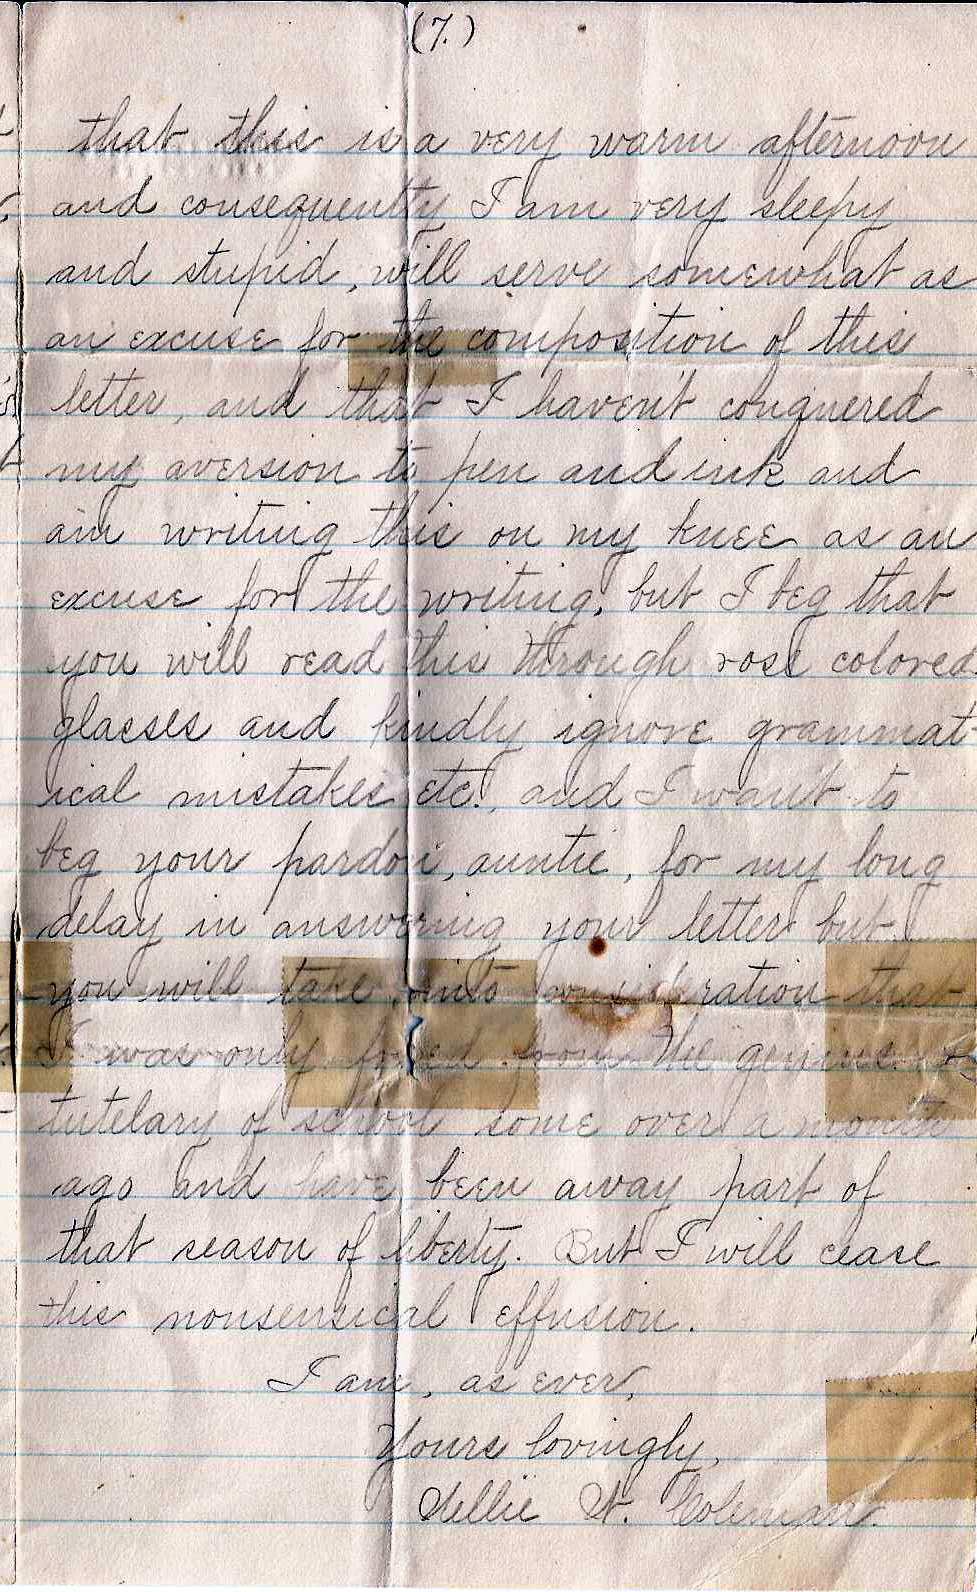 (7.)
that this is a very warm afternoon
and consequently I am very sleepy
and stupid, will serve somewhat as
an excuse for the composition of this
letter, and that I haven't conquered
my aversion to pen and ink and
am writing this on my knee as an
excuse for the writing, but I beg that
you will read this through rose colored
glasses and kindly ignore grammat-
ical mistakes etc., and I want to
beg your pardon, auntie, for my long
delay in answering your letter but
you will take into consideration that
I was only freed from the genius
tutelary of school some over a month
ago and have been away part of
that season of liberty. But I will cease
this nonsensical effusion.
I am, as ever,
Yours lovingly,
Nellie W. Coleman.